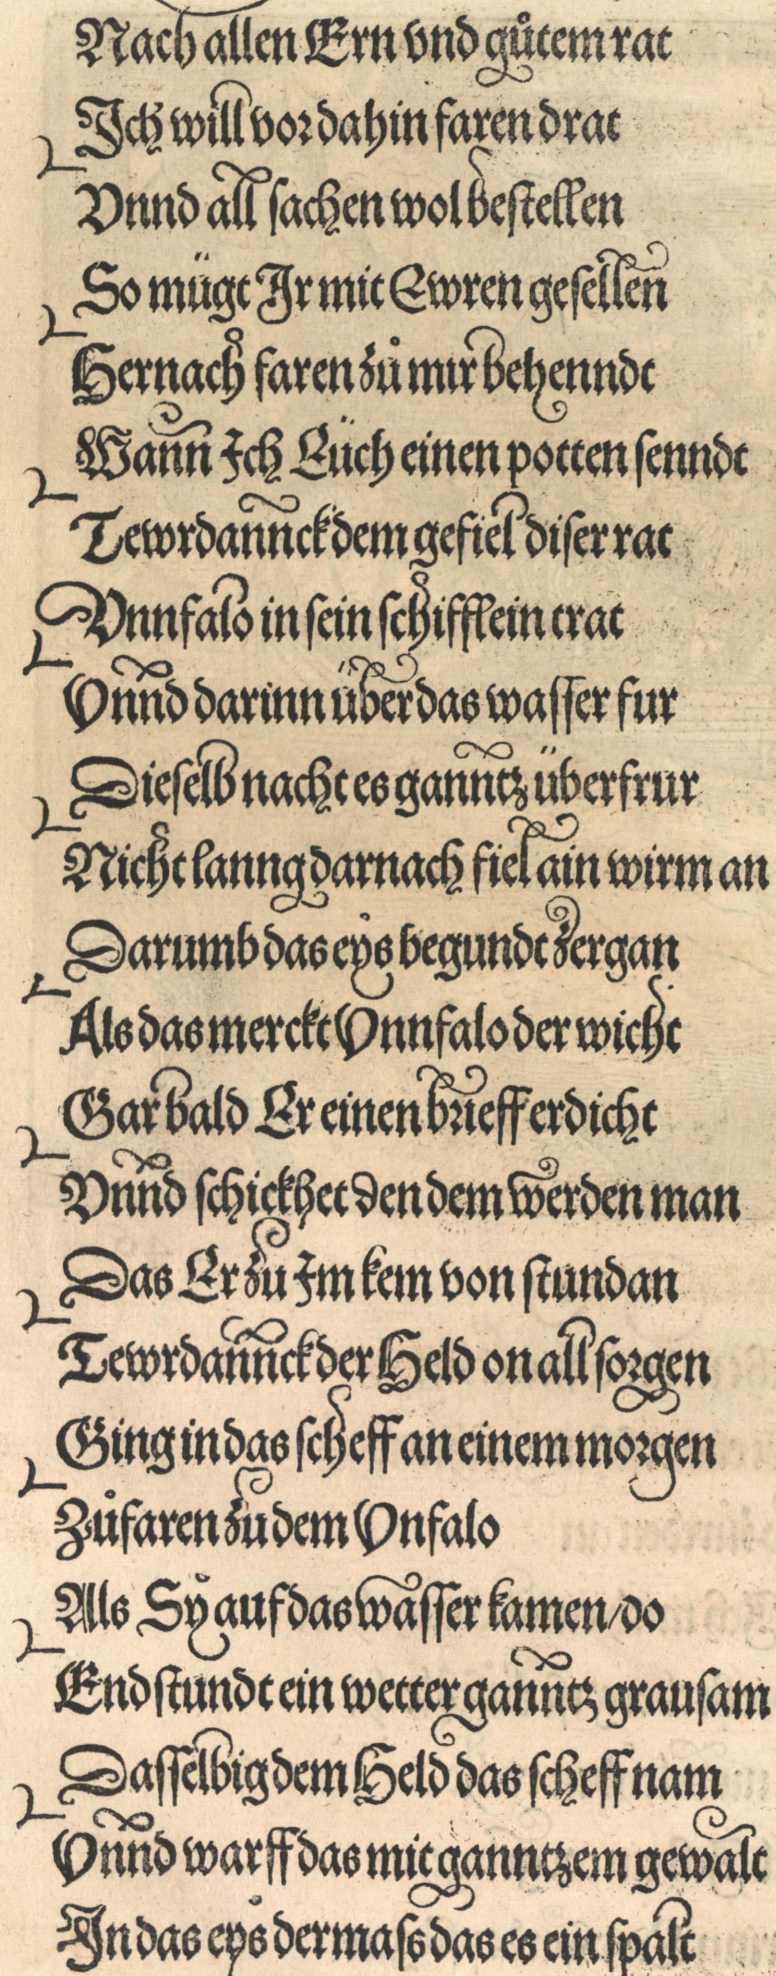 Nach allen Ern vnd gůtem rat
Ich will vor dahin faren drat
Vnnd all sachen wol bestellen
So mügt Ir mit Ewren gesellen
Hernach faren zů mir behenndt
Wann Ich Eüch einen potten senndt
Tewrdannck dem gefiel diser rat
Vnnfalo in sein schifflein trat
Vnnd darinn über das wasser fur
Dieselb nacht es ganntz überfrur
Nicht lanng darnach fiel ain wirm an
Darumb das eys begundt zergan
Als das merckt Vnnfalo der wicht
Gar bald Er einen brieff erdicht
Vnnd schickhet den dem werden man
Das Er zu Im kem von stundan
Tewrdannck der Held on all sorgen
Ging in das scheff an einem morgen
Zůfaren zu dem Vnfalo
Als Sy auf das wasser kamen/do
Endstundt ein wetter ganntz grausam
Dasselbig dem Held das scheff nam
Vnnd warff das mit ganntzem gewalt
In das eys dermass das es ein spalt